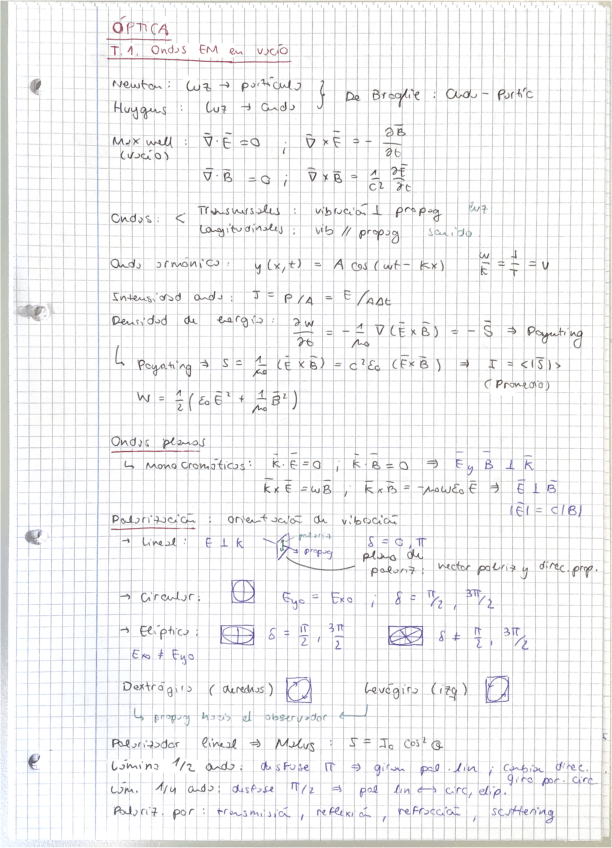 ÓPTICA
T.1. Ondas EM en vacío
Newton: luz → partícula
Huygens: luz → onda } De Broglie: Onda-Partíc
Maxwell: ∇̄·Ē = 0 ; ∇̄×Ē = -∂B̄/∂t
(vacío)
∇̄·B̄ = 0 ; ∇̄×B̄ = 1/c² ∂Ē/∂t
Ondas: < Transversales: vibración ⊥ propag luz
Longitudinales: vib // propag sonido
Onda armónica: y(x,t) = A cos(wt - kx) w/k = λ/T = v
Intensidad onda: I = P/A = E/AΔt
Densidad de energía: ∂w/∂t = -1/μ₀ ∇(Ē×B̄) = -S̄ ⇒ Poynting
↳ Poynting → S = 1/μ₀ (Ē×B̄) = c²ε₀ (Ē×B̄) ⇒ I = <|S̄|>
(Promedio)
W = 1/2 (ε₀Ē² + 1/μ₀ B̄²)
Ondas planas
↳ Monocromáticas: k̄·Ē = 0 ; k̄·B̄ = 0 ⇒ Ē y B̄ ⊥ k̄
k̄×Ē = wB̄ , k̄×B̄ = -μ₀wε₀Ē ⇒ Ē ⊥ B̄
|Ē| = c|B|
Polarización: orientación de vibración
→ Lineal: E ⊥ k polariz δ = 0, π
propag plano de
polariz: vector polariz y direc. prop.
→ Circular: Ey₀ = Ex₀ ; δ = π/2, 3π/2
→ Elíptica: δ = π/2, 3π/2 δ ≠ π/2, 3π/2
Ex₀ ≠ Ey₀
Dextrógiro (derechas) Levógiro (izq)
↳ propag hacia el observador ↵
Polarizador lineal ⇒ Malus: I = I₀ cos² θ
Lámina 1/2 onda: desfase π ⇒ giran pol. lin ; cambia direc.
giro por. circ
Lám. 1/4 onda: desfase π/2 ⇒ pol lin ↔ circ, elip.
Polariz. por: transmisión, reflexión, refracción, scattering